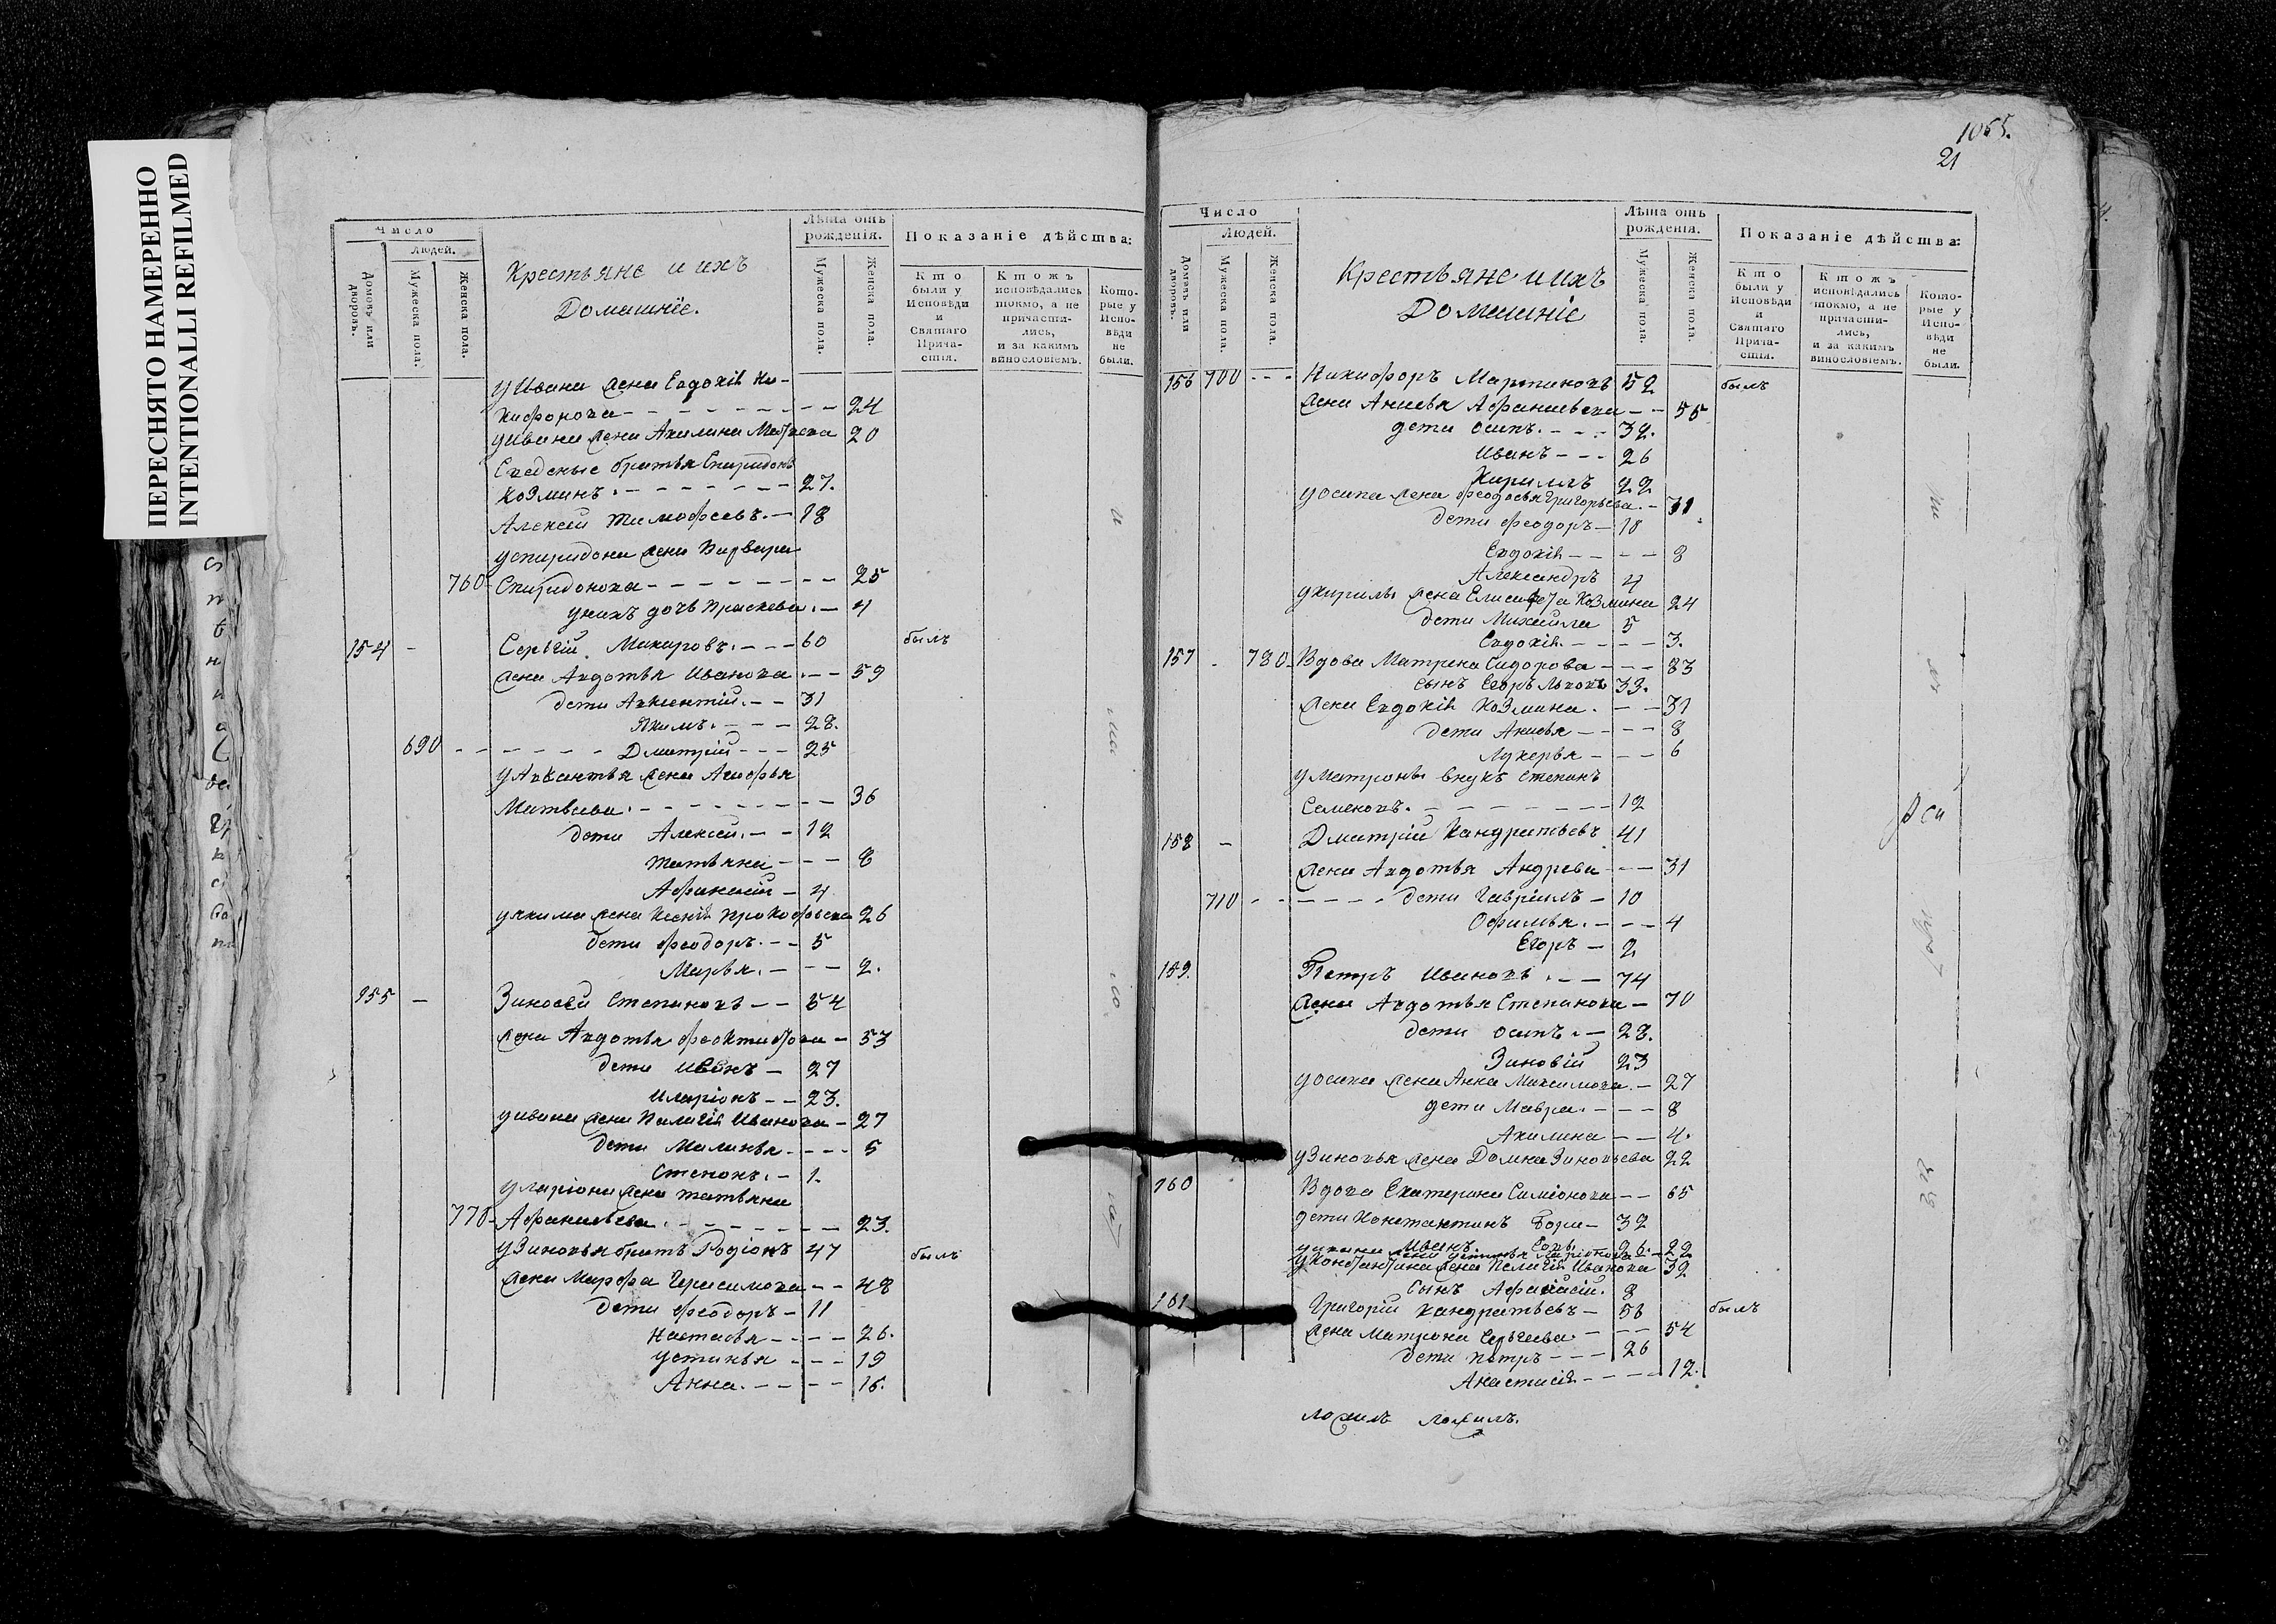 ПЕРЕСНЯТО НАМЕРЕННО
INTENTIONALLI REFILMED
Число
Людей.
Домовъ или дворовъ.
Мужеска пола.
Женска пола.
Крестьяне и ихъ
Домашніе.
Лѣта отъ рожденія.
Мужеска пола.
Женска пола.
Показаніе дѣйства:
Кто были у Исповѣди и Святаго Прича-стія.
Ктожъ исповѣдались токмо, а не причасти-лись, и за какимъ винословіемъ.
Кото-рые у Испо-вѣди не были.
у Ивана жена Евдокія Ни-
кифорова 24
у Ивана жена Акилина 20
Сведеные братья Спиридонъ
Козминъ 27.
Алексей Тимофеевъ. 18
у Спиридона жена Варвара
760 Спиридонова 25
у нихъ дочь Праскева. 4
154 Сергій Макаровъ. 60 былъ
жена Авдотья Иванова 59
дети Авксентій. 31
Якимъ. 28.
690 Дмитрій 25
у Авксентья жена Агафья
Матвеева. 36
дети Алексей. 12
Татьяна 8
Афанасій 4
у Якима жена Ксенія Прокофьева 26
дети Феодоръ. 5
Марья. 2.
155 Зиновей Степановъ 54
жена Авдотья Феоктистова 53
дети Иванъ 27
Иларіонъ 23.
у Ивана жена Палагія Иванова 27
дети Маланья 5
Степанъ. 1.
у Ларіона жена Татьяна
770 Афанасьева. 23.
у Зиновья братъ Родіонъ 47 былъ
жена Марфа Герасимова 48
дети Феодоръ 11
Настасья 26.
Устинья 19
Анна. 16.
1055.
21
Число
Людей.
Домовъ или дворовъ.
Мужеска пола.
Женска пола.
Крестьяне и ихъ
Домашніе
Лѣта отъ рожденія.
Мужеска пола.
Женска пола.
Показаніе дѣйства:
Кто были у Исповѣди и Святаго Прича-стія.
Ктожъ исповѣдались токмо, а не причасти-лись, и за какимъ винословіемъ.
Кото-рые у Испо-вѣди не были.
156 700 Никифоръ Мартиновъ 52 былъ
жена Анисья Афанасьевна 55
дети Осипъ. 32.
Иванъ 26
Кирилъ 22
у Осипа жена Феодосья Григорьева. 31
дети Феодоръ 10
Евдокія 8
Александръ 4
у Кирилы жена Елисавета Козмина 24
дети Михайла 5
Евдокія. 3.
157 780 Вдова Матрена Сидорова 83
сынъ Егоръ Львовъ 33.
жена Евдокія Козмина. 31
дети Анисья 8
Лукерья 6
у Матроны внукъ Степанъ
Семеновъ. 12
158 Дмитрій Кандратьевъ 41
жена Авдотья Андрева 31
710 дети Гавріилъ 10
Офимья. 4
Егоръ 2
159. Петръ Ивановъ 74
жена Авдотья Степанова 70
дети Осипъ. 28.
Зиновій 23
у Осипа жена Анна Максимова. 27
дети Мавра. 8
Акилина 4.
у Зиновья жена Домна Зиновьева 22
160 Вдова Екатерина Симіонова 65
дети Константинъ 32
Иванъ 26.
у Ивана жена Устинья Ларіонова 22
у Константина жена Палагія Иванова 32
сынъ Афанасій. 8
161 Григорій Кандратьевъ 56 былъ
жена Матрона Сергеева. 54
дети Петръ 26
Анастасія 12.